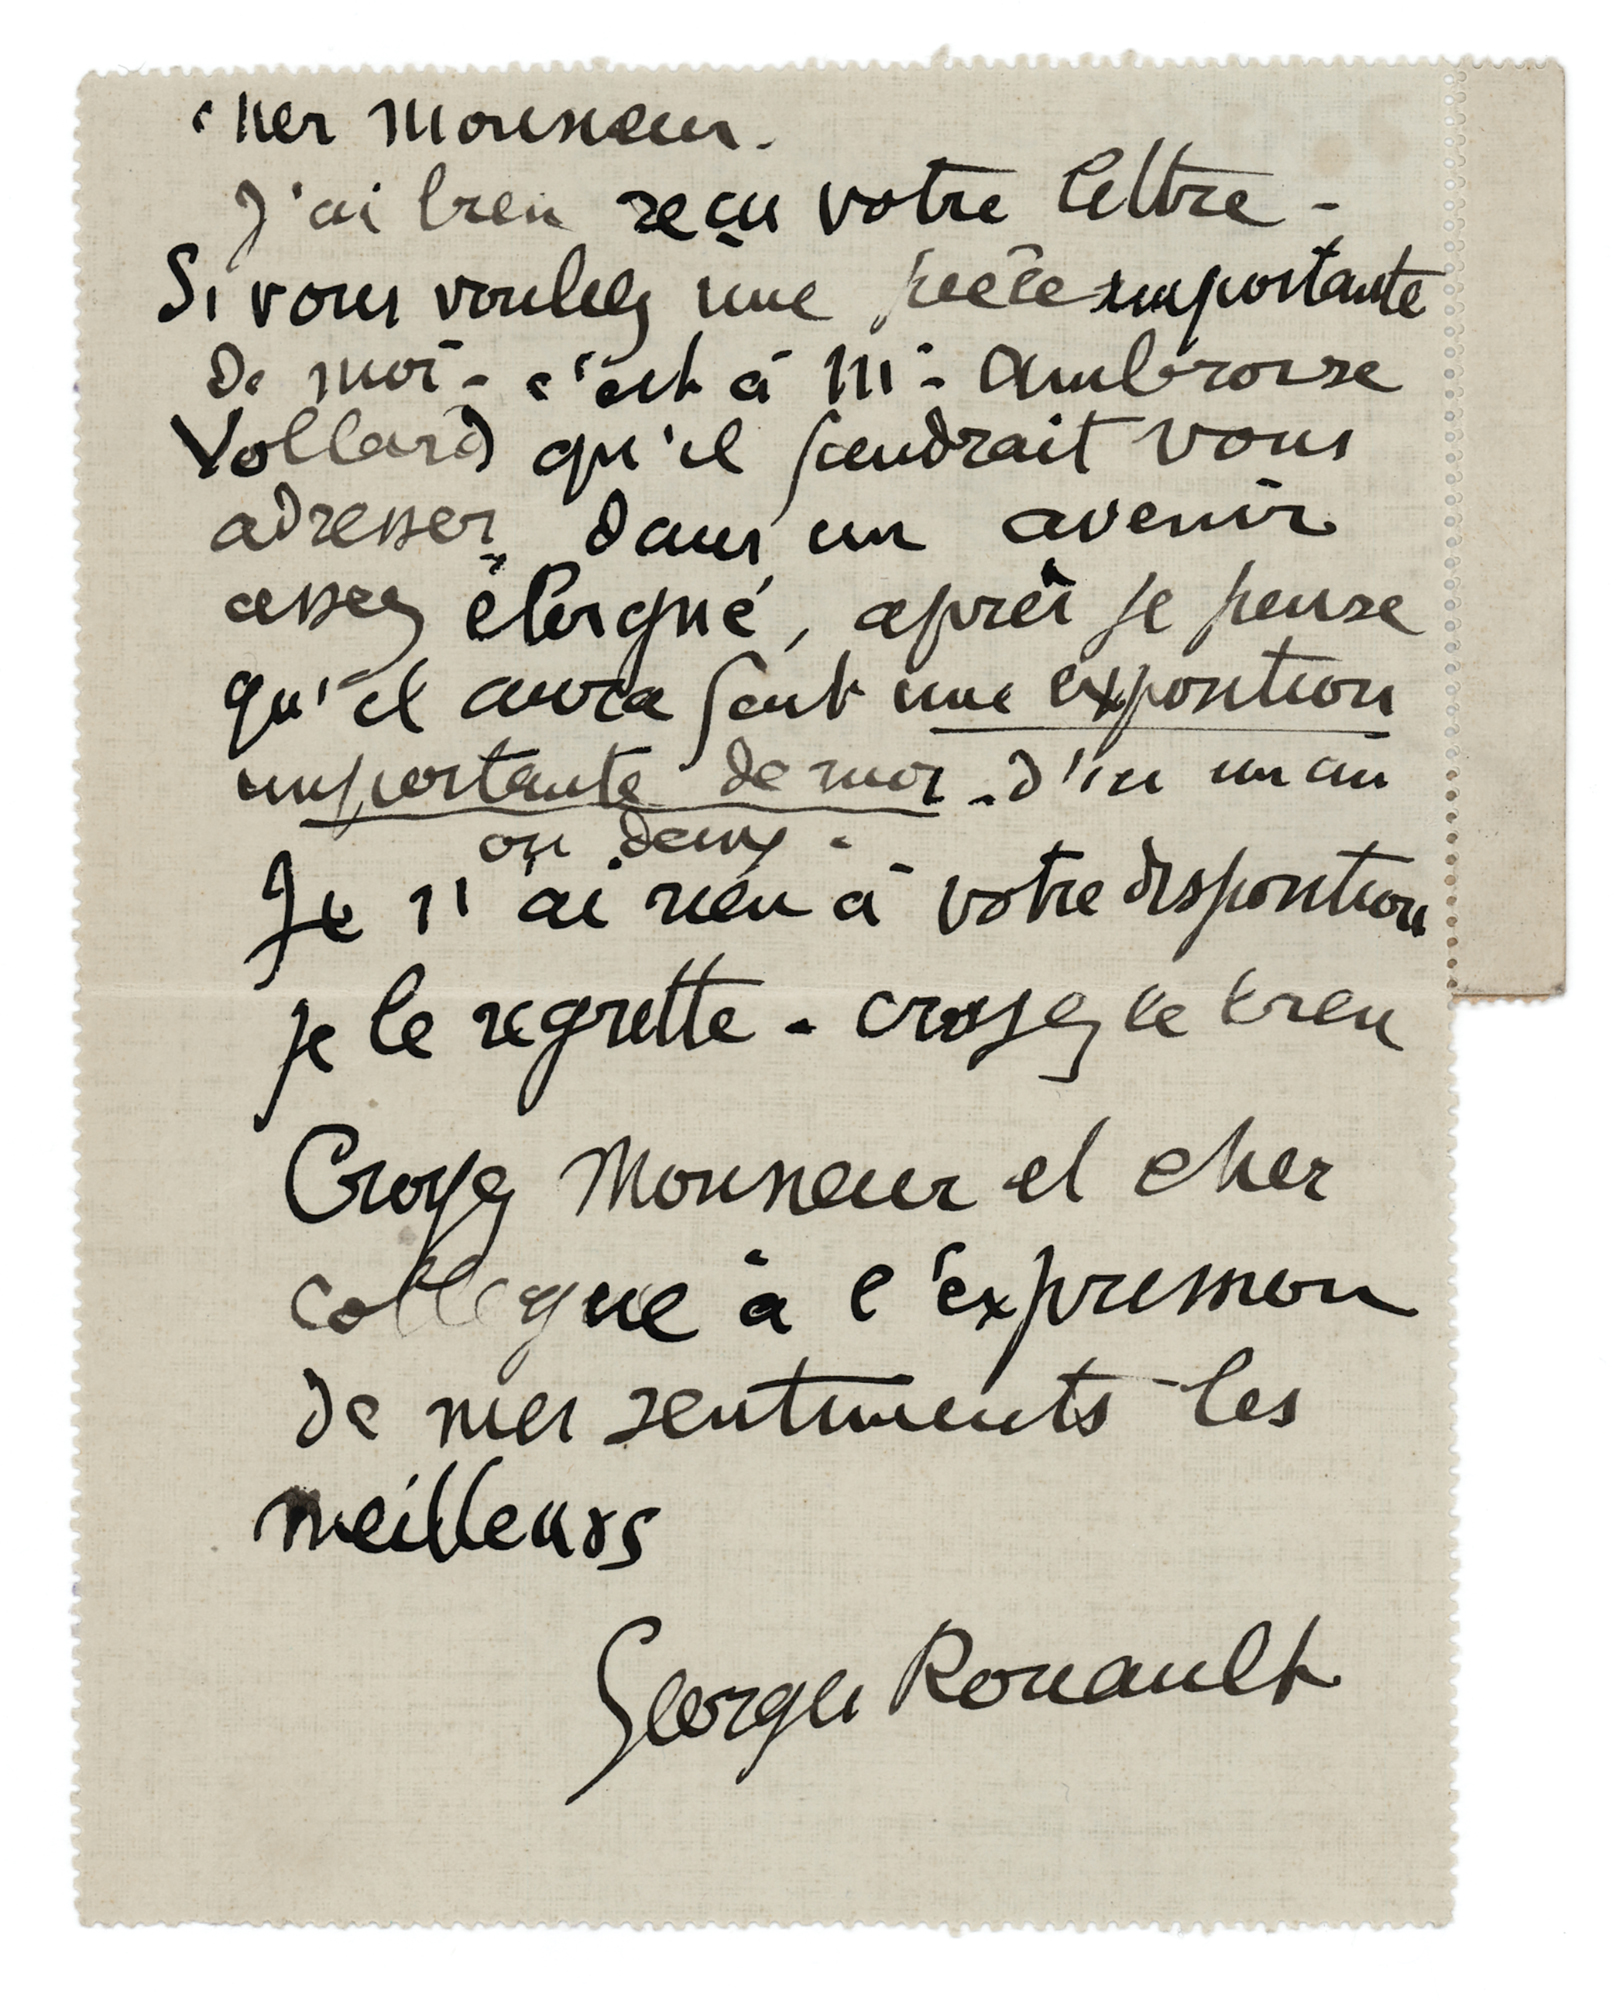 cher Monsieur.
J'ai bien reçu votre lettre -
Si vous voulez une pièce importante
de moi - c'est à M. Ambroise
Vollard qu'il faudrait vous
adresser, dans un avenir
assez éloigné, après je pense
qu'il aura fait une exposition
importante de moi - d'ici un an
ou deux -
Je n'ai rien à votre disposition
je le regrette - croyez le bien
Croyez Monsieur et cher
collègue à l'expression
de mes sentiments les
meilleurs
Georges Rouault